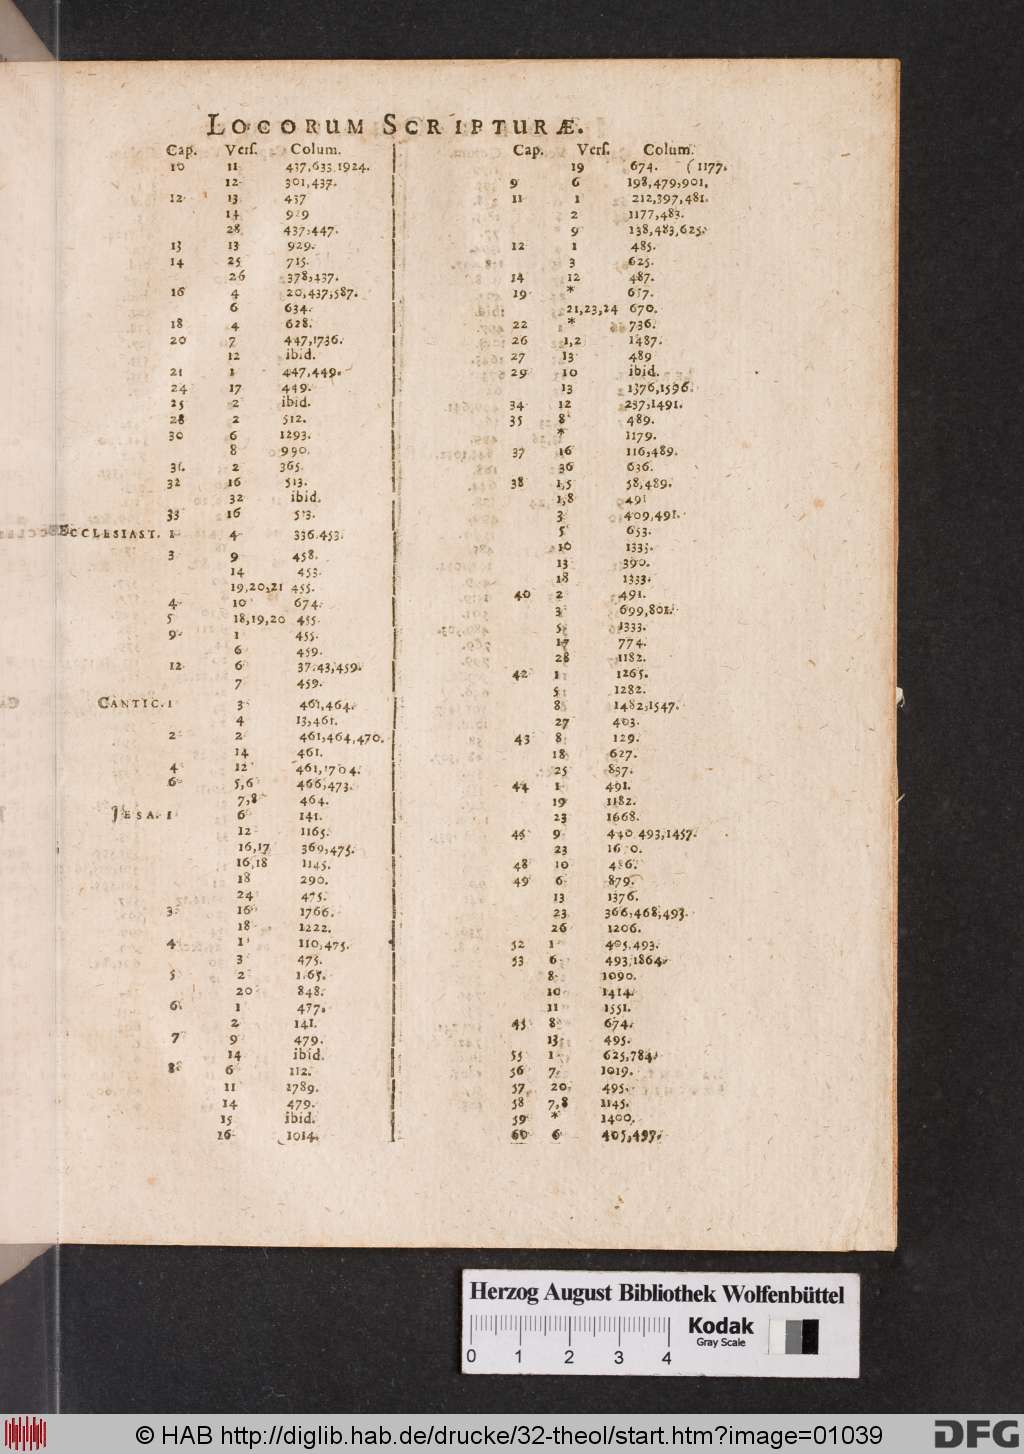 LOCORUM SCRIPTURÆ.
Cap. Vers. Colum.
10 11 437,633.1924.
12 301,437.
12 13 437
14 929
28 437,447.
13 13 929.
14 25 715.
26 378,437.
16 4 20,437,587.
6 634.
18 4 628.
20 7 447,1736.
12 ibid.
21 1 447,449.
24 17 449.
25 2 ibid.
28 2 512.
30 6 1293.
8 990.
31. 2 365.
32 16 513.
32 ibid.
33 16 513.
ECCLESIAST. 1 4 336.453.
3 9 458.
14 453.
19,20,21 455.
4 10 674.
5 18,19,20 455.
9 1 455.
6 459.
12 6 37.43,459.
7 459.
CANTIC. 1 3 461,464.
4 13,461.
2 2 461,464,470.
14 461.
4 12 461,1704.
6 5,6 466,473.
7,8 464.
JESA. 1 6 141.
12 1165.
16,17 369,475.
16,18 1145.
18 290.
24 475.
3 16 1766.
18 1222.
4 1 110,475.
3 475.
5 2 1165.
20 848.
6 1 477.
2 141.
7 9 479.
14 ibid.
8 6 112.
11 1789.
14 479.
15 ibid.
16 1014.
Cap. Vers. Colum.
19 674. (1177.
9 6 198,479,901.
11 1 212,397,481.
2 1177,483.
9 138,483,625.
12 1 485.
3 625.
14 12 487.
19 * 657.
21,23,24 670.
22 * 736.
26 1,2 1487.
27 13 489
29 10 ibid.
13 1376,1596.
34 12 237,1491.
35 8 489.
* 1179.
37 16 116,489.
36 636.
38 1,5 58,489.
1,8 491
3 409,491.
5 653.
10 1333.
13 390.
18 1333.
40 2 491.
3 699,801.
5 1333.
17 774.
28 1182.
42 1 1265.
5 1282.
8 1482,1547.
27 403.
43 8 129.
18 627.
25 837.
44 1 491.
19 1182.
23 1668.
45 9 440.493,1457.
23
48 10 486.
49 6 879.
13 1376.
23 366,468,493.
26 1206.
52 1 405.493.
53 6 493,1864.
8 1090.
10 1414.
11 1551.
45 8 674.
13 495.
55 1 625,784.
56 7 1019.
57 20 495.
58 7,8 1145.
59 * 1400.
60 6 405,497.
Herzog August Bibliothek Wolfenbüttel
Kodak
Gray Scale
0 1 2 3 4
© HAB http://diglib.hab.de/drucke/32-theol/start.htm?image=01039
DFG